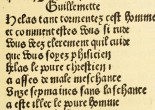 Guillemette
Helas tant tormentez cest homme
et comment estes vous si rude
vous veez clerement quil cuide
que vous soyez phisicien
helas le poure chrestien
a asses de male meschance
Unze sepmaines sans laschance
a este illec le poure homme